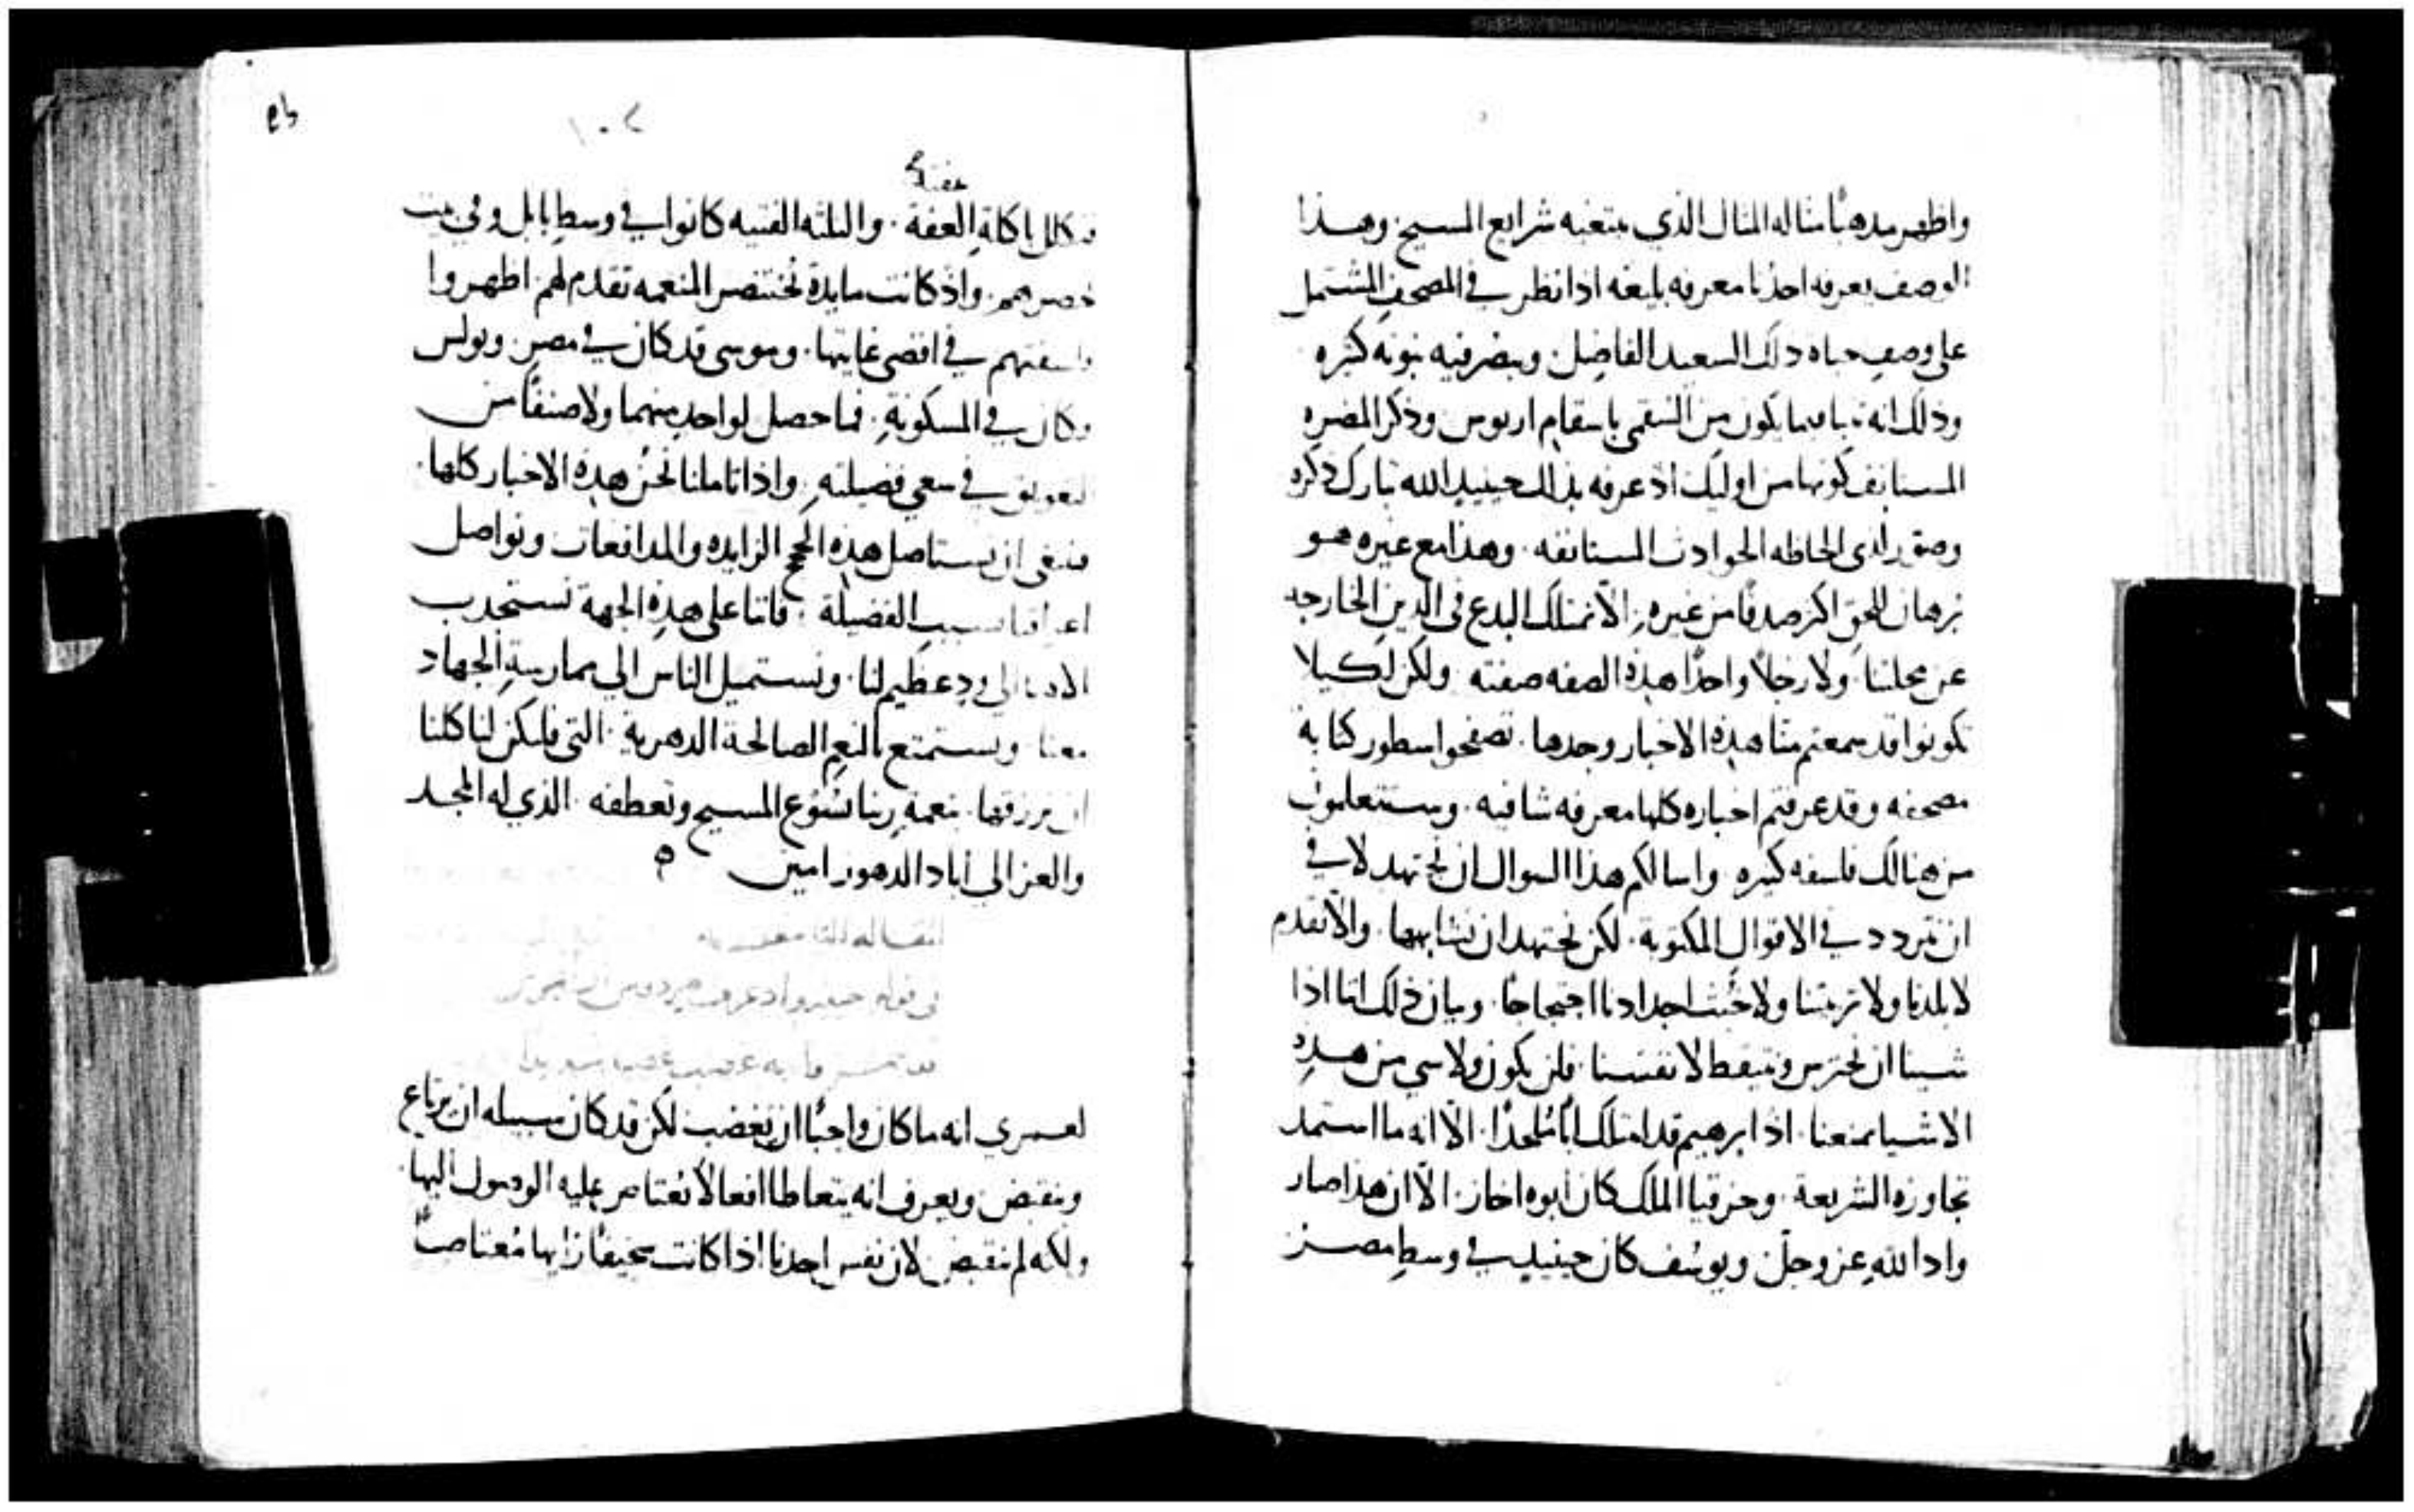 واظهر مدهبًا مثاله المثال الذي تبتغيه شرايع المسيح. وهـذا
الوصف يعرفه احدنا معرفه بليغه اذا نظر في المصحف المشتمل
على وصف حياه ذلك السعيد الفاضل. ويبصر فيه نبوته كثيره
وذلك انه تنبا بما يكون من السقمى باسقام اريوس وذكر المضره
المستانف كونها من اوليك اذ عرفه بذلك حينيد الله تبارك ذكره
وصور لدى الحاظه الحوادث المستانفه. وهذا مع غيره هـو
برهان للحق اكثر صدقًا من غيره. الا تمتلك البدع في الدين الخارجه
عن محلتنا ولا رجلاً واحدًا هذه الصفه صفته ولكن لكيلا
تكونوا قد سمعتم منا هذه الاخبار وحدها. تصفحوا سطور كتابة
مصحفه وقد عرفتم اخباره كلها معرفه شافيه. وستتعلمون
من هنالك فلسفه كثيره واسالكم هذا السوال ان نجتهد لا في
ان نتردد في الاقوال المكتوبة. لكن نجتهد ان نشابهها. والا نقدم
لا بلدنا ولا تربيتنا ولا خبث اجدادنا احتجاجًا. وبيان ذلك اننا اذا
شينا ان نحترس ونتيقظ لانفسنا. فلن يكون ولا شي من هـذه
الاشيا يمنعنا. اذ ابرهيم قد امتلك ابًا ملحدًا. الا انه ما استمد
تجاوزه الشريعة. وحزقيا الملك كان ابوه احاز. الا ان هذا صار
وادا لله عز وجل ويوسف كان حينيد في وسط مصـر
١٠٢
عفته
تكلل باكلة العفة. والثلثه الفتيه كانوا في وسط بابل وفي بيت
قصرهم. واذ كانت مايدة بختنصر المنعمه تقدم لهم. اظهروا
فلسفتهم في اقصى غايتها. وموسى قد كان في مصر. وبولس
وكان في المسكونة. فما حصل لواحد منهما ولا صنفًا من
التعويق في سعي فضيلته. واذا تاملنا نحن هذه الاخبار كلها
فينبغي ان نستاصل هذه الحجج الزايده والمدافعات ونواصل
اعراقنا بسبب الفضيلة. فاننا على هذه الجهة نستجذب
الاهنا الى ود عظيم لنا. ونستميل الناس الى ممارسة الجهاد
معنا ونستمتع بالنعم الصالحة الدهرية. التي فليكن لنا كلنا
ان نرزقها. بنعمة ربنا يسوع المسيح وتعطفه. الذي له المجـد
والعز الى اباد الدهور امين
المقاله التاسعه
في قوله حينيد اذ عرف هيرودس ان المجوس
قد تمسخروا به غضب غضبًا شديدًا
لعـمري انه ما كان واجبًا ان يغضب لكن قد كان سبيله ان يرتاع
وينقبض ويعرف انه يتعاطا افعالاً يعتاص عليه الوصول اليها
ولكنه لم ينقبض لان نفس احدنا اذا كانت سخيفًا رايها مُعتاصًا